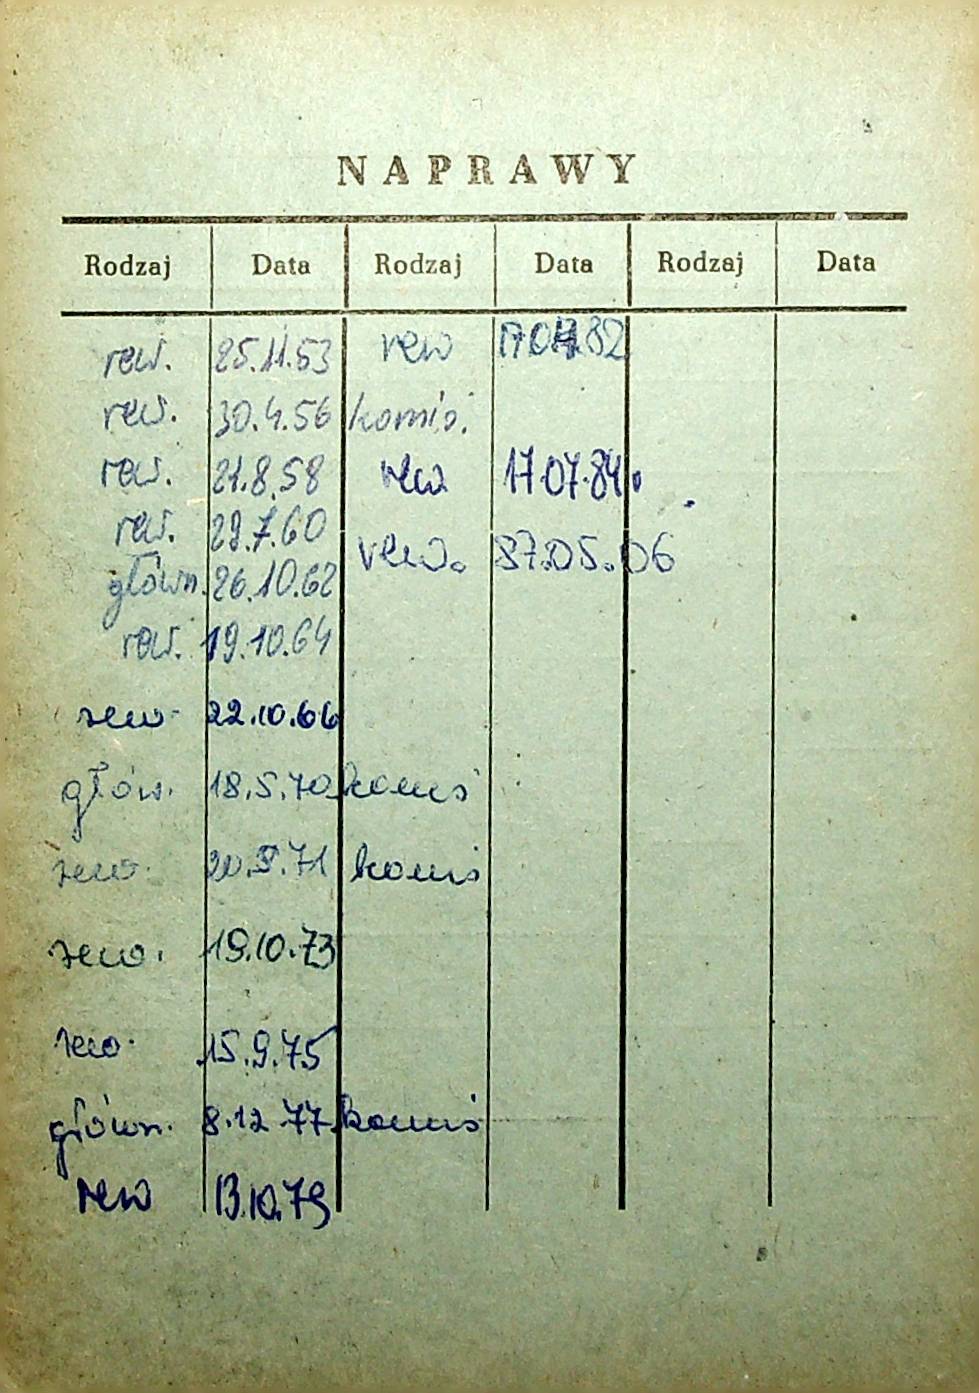 NAPRAWY
Rodzaj Data Rodzaj Data Rodzaj Data
rew. 25.11.53 rew 17.07.82
rew. 30.4.56 komis.
rew. 21.8.58 rew 17.07.84.
rew. 29.7.60
rew. 87.05.06
główn. 26.10.62
rew. 19.10.64
rew. 22.10.66
głów. 18.5.70 komis
rew. 20.X.71 komis
rew. 19.10.73
rew. 15.9.75
główn. 8.12 77 komis
rew 13.10.79